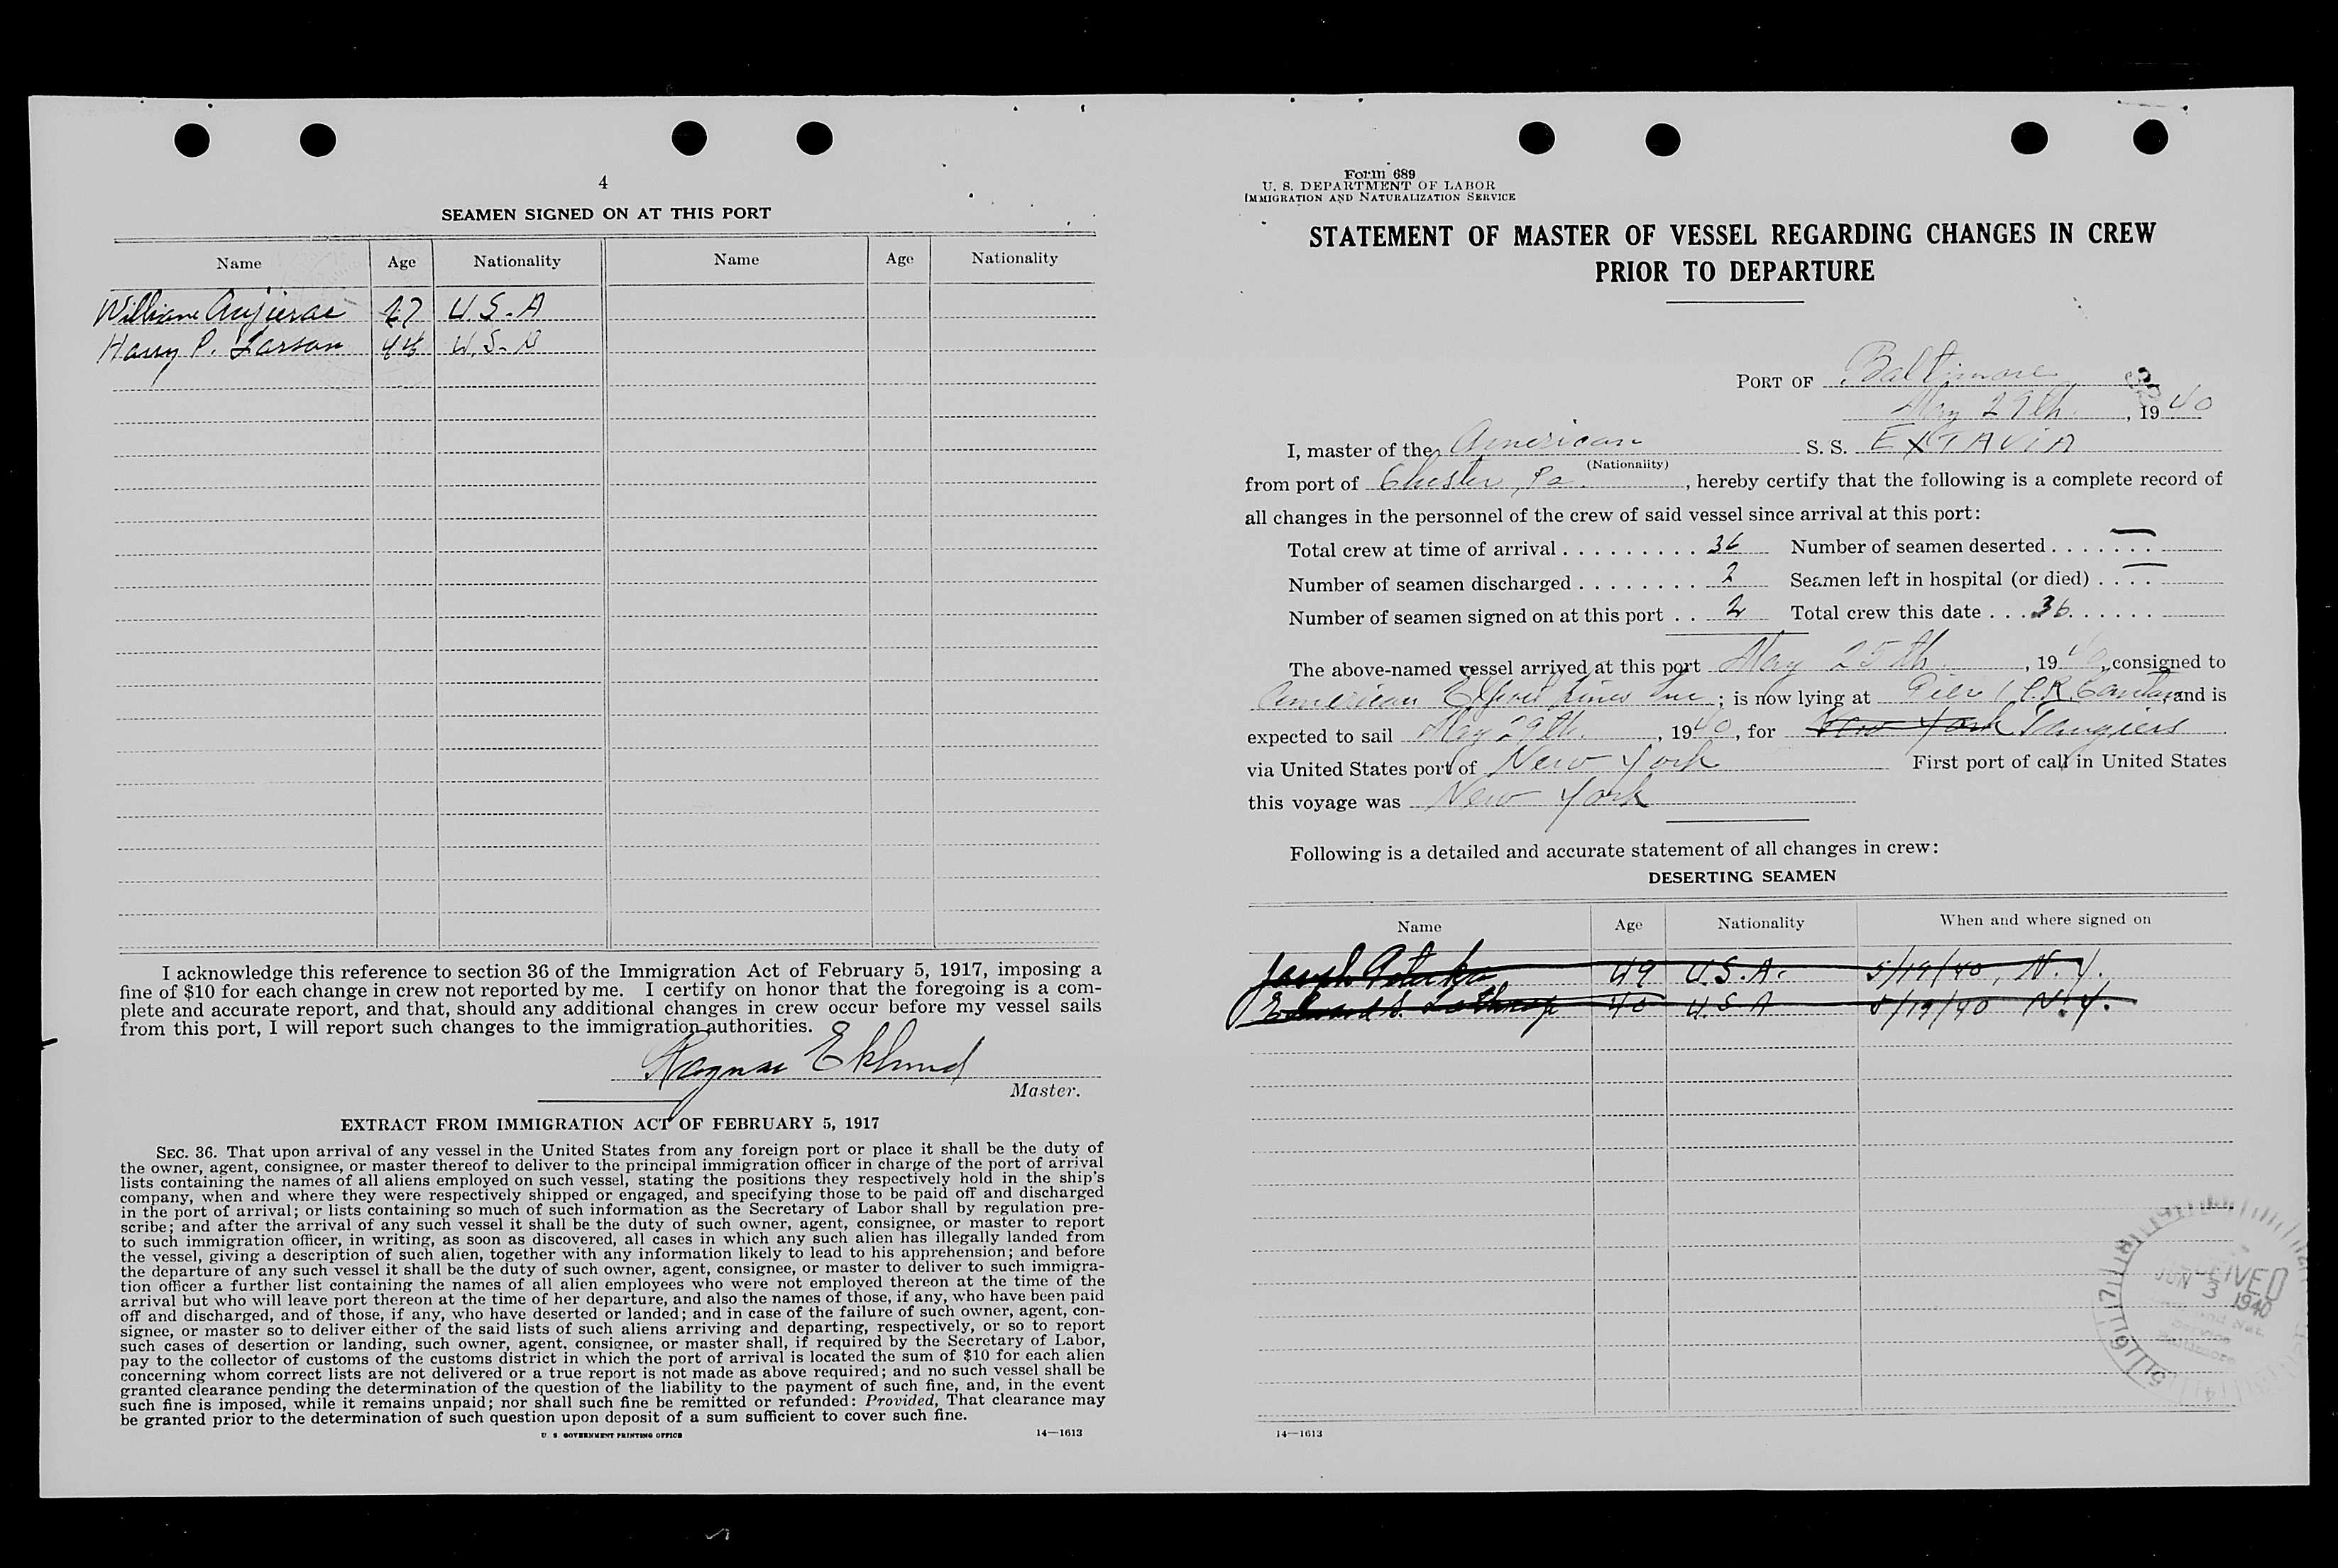 4
SEAMEN SIGNED ON AT THIS PORT
Name Age Nationality Name Age Nationality
William 27 U.S.A
Harry P. Larson 44 U.S.A
I acknowledge this reference to section 36 of the Immigration Act of February 5, 1917, imposing a
fine of $10 for each change in crew not reported by me. I certify on honor that the foregoing is a com-
plete and accurate report, and that, should any additional changes in crew occur before my vessel sails
from this port, I will report such changes to the immigration authorities.
Ragnar Eklund
Master.
EXTRACT FROM IMMIGRATION ACT OF FEBRUARY 5, 1917
SEC. 36. That upon arrival of any vessel in the United States from any foreign port or place it shall be the duty of
the owner, agent, consignee, or master thereof to deliver to the principal immigration officer in charge of the port of arrival
lists containing the names of all aliens employed on such vessel, stating the positions they respectively hold in the ship's
company, when and where they were respectively shipped or engaged, and specifying those to be paid off and discharged
in the port of arrival; or lists containing so much of such information as the Secretary of Labor shall by regulation pre-
scribe; and after the arrival of any such vessel it shall be the duty of such owner, agent, consignee, or master to report
to such immigration officer, in writing, as soon as discovered, all cases in which any such alien has illegally landed from
the vessel, giving a description of such alien, together with any information likely to lead to his apprehension; and before
the departure of any such vessel it shall be the duty of such owner, agent, consignee, or master to deliver to such immigra-
tion officer a further list containing the names of all alien employees who were not employed thereon at the time of the
arrival but who will leave port thereon at the time of her departure, and also the names of those, if any, who have been paid
off and discharged, and of those, if any, who have deserted or landed; and in case of the failure of such owner, agent, con-
signee, or master so to deliver either of the said lists of such aliens arriving and departing, respectively, or so to report
such cases of desertion or landing, such owner, agent, consignee, or master shall, if required by the Secretary of Labor,
pay to the collector of customs of the customs district in which the port of arrival is located the sum of $10 for each alien
concerning whom correct lists are not delivered or a true report is not made as above required; and no such vessel shall be
granted clearance pending the determination of the question of the liability to the payment of such fine, and, in the event
such fine is imposed, while it remains unpaid; nor shall such fine be remitted or refunded: Provided, That clearance may
be granted prior to the determination of such question upon deposit of a sum sufficient to cover such fine.
U. S. GOVERNMENT PRINTING OFFICE 14—1613
Form 689
U. S. DEPARTMENT OF LABOR
IMMIGRATION AND NATURALIZATION SERVICE
STATEMENT OF MASTER OF VESSEL REGARDING CHANGES IN CREW
PRIOR TO DEPARTURE
PORT OF Baltimore
May 29th, 1940
I, master of the American S. S. EXTAVIA
(Nationality)
from port of Chester, Pa., hereby certify that the following is a complete record of
all changes in the personnel of the crew of said vessel since arrival at this port:
Total crew at time of arrival . . . . . . . . . 36 Number of seamen deserted . . . . . . . —
Number of seamen discharged . . . . . . . . 2 Seamen left in hospital (or died) . . . . —
Number of seamen signed on at this port . . 2 Total crew this date . . . 36 . . . . . .
The above-named vessel arrived at this port May 25th, 1940, consigned to
American Export Lines Inc; is now lying at Pier 1 P.R. Canton, and is
expected to sail May 29th, 1940, for New York Tangiers
via United States port of New York First port of call in United States
this voyage was New York
Following is a detailed and accurate statement of all changes in crew:
DESERTING SEAMEN
Name Age Nationality When and where signed on
Joseph 49 U.S.A. 5/19/40, N.Y.
Edward S. Lothrop 40 U.S.A 5/19/40 N.Y.
RECEIVED
JUN 3 1940
and Nat.
Service
Baltimore
14—1613